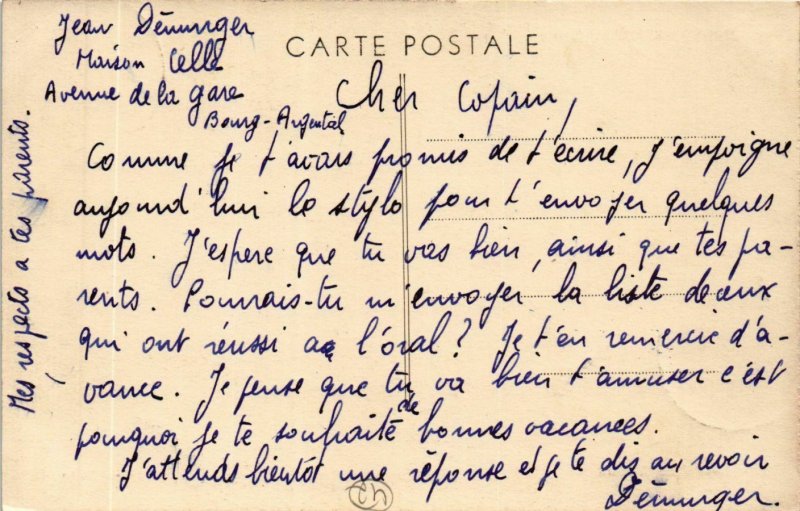 Jean Démurger
Maison Celle
Avenue de la gare
Bourg-Argental
CARTE POSTALE
Cher Copain,
Comme je t'avais promis de t'écrire, j'empoigne
aujourd'hui le stylo pour t'envoyer quelques
mots. J'espère que tu vas bien, ainsi que tes pa-
rents. Pourrais-tu m'envoyer la liste de ceux
qui ont réussi a l'oral? Je t'en remercie d'a-
vance. Je pense que tu va bien t'amuser c'est
pourquoi je te souhaite de bonnes vacances.
J'attends bientôt une réponse et je te dis au revoir
Démurger.
Mes respects a tes parents.
ch